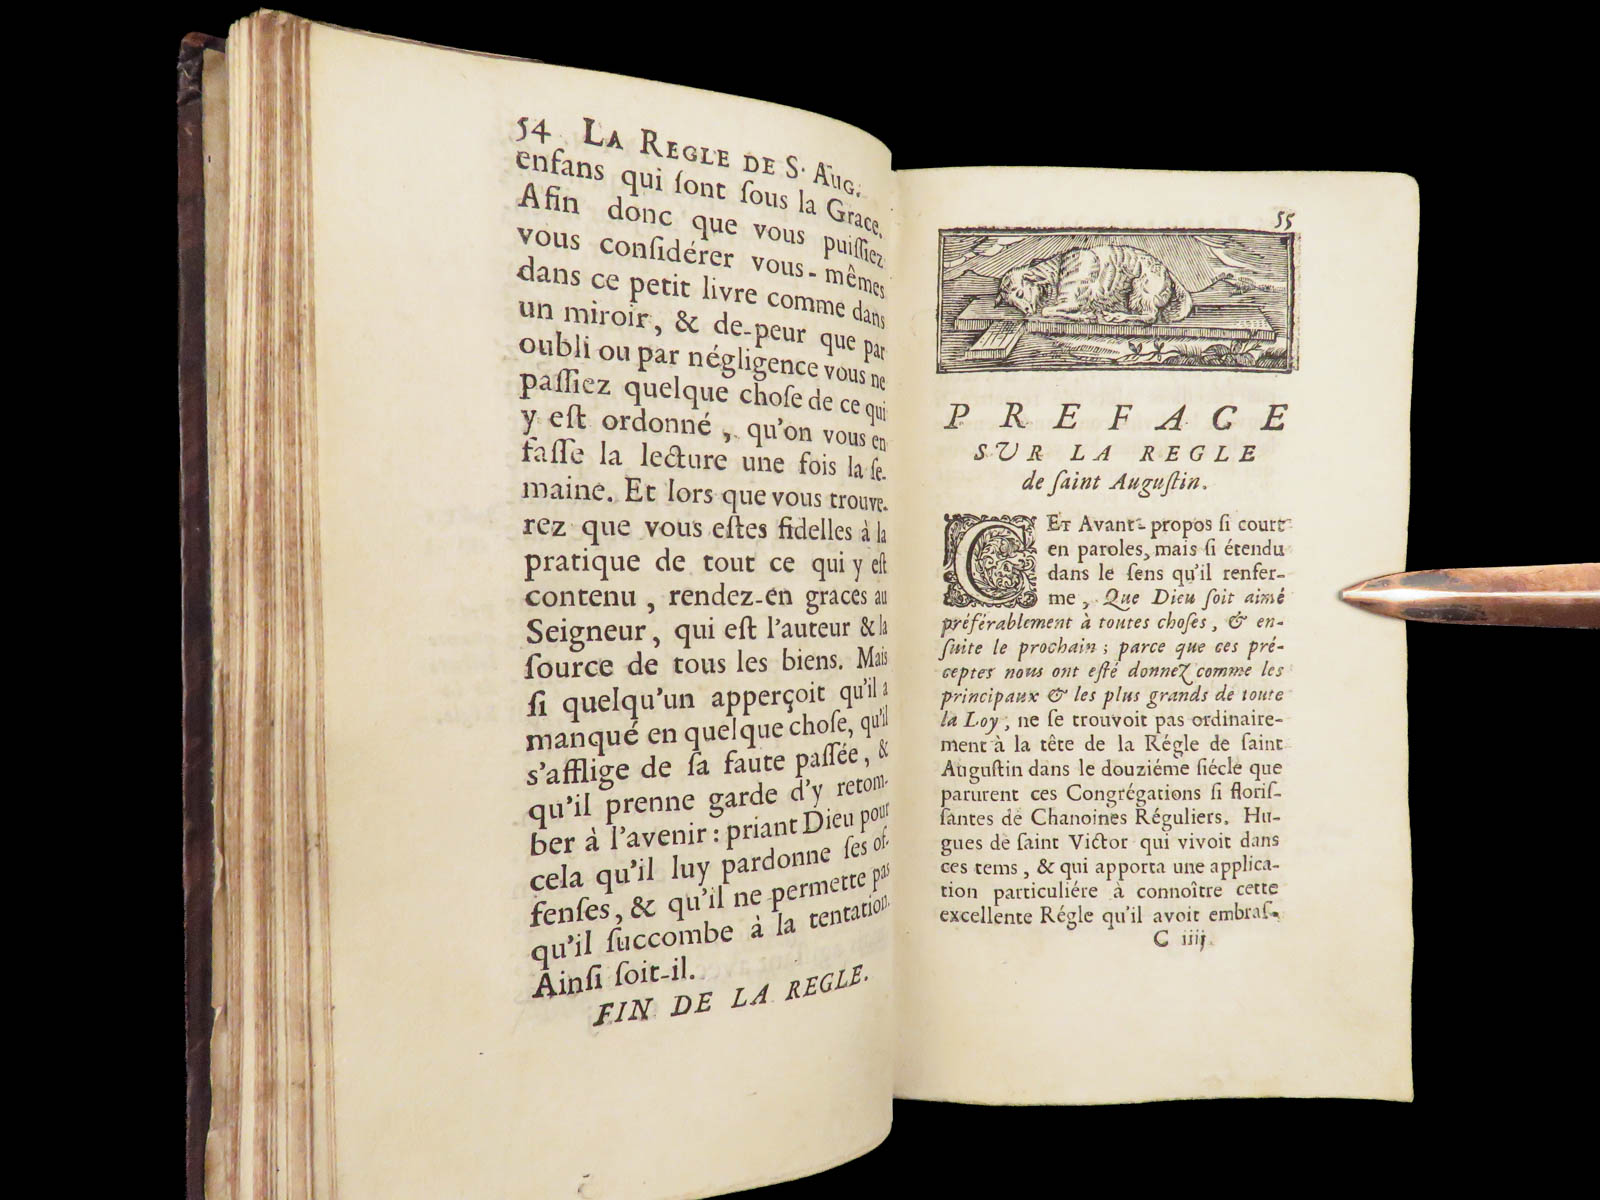 54 LA REGLE DE S. AUG.
enfans qui ſont ſous la Grace.
Afin donc que vous puiſſiez
vous conſidérer vous-mêmes
dans ce petit livre comme dans
un miroir, & de-peur que par
oubli ou par négligence vous ne
paſſiez quelque choſe de ce qui
y eſt ordonné, qu'on vous en
faſſe la lecture une fois la ſe-
maine. Et lors que vous trouve-
rez que vous eſtes fidelles à la
pratique de tout ce qui y eſt
contenu, rendez-en graces au
Seigneur, qui eſt l'auteur & la
ſource de tous les biens. Mais
ſi quelqu'un apperçoit qu'il a
manqué en quelque choſe, qu'il
s'afflige de ſa faute paſſée, &
qu'il prenne garde d'y retom-
ber à l'avenir : priant Dieu pour
cela qu'il luy pardonne ſes of-
fenſes, & qu'il ne permette pas
qu'il ſuccombe à la tentation.
Ainſi ſoit-il.
FIN DE LA REGLE.
55
PREFACE
SUR LA REGLE
de ſaint Auguſtin.
CET Avant-propos ſi court
en paroles, mais ſi étendu
dans le ſens qu'il renfer-
me, Que Dieu ſoit aimé
préférablement à toutes choſes, & en-
ſuite le prochain ; parce que ces pré-
ceptes nous ont eſté donnez comme les
principaux & les plus grands de toute
la Loy, ne ſe trouvoit pas ordinaire-
ment à la tête de la Régle de ſaint
Auguſtin dans le douziéme ſiécle que
parurent ces Congrégations ſi floriſ-
ſantes de Chanoines Réguliers. Hu-
gues de ſaint Victor qui vivoit dans
ces tems, & qui apporta une applica-
tion particuliére à connoître cette
excellente Régle qu'il avoit embraſ-
C iiij